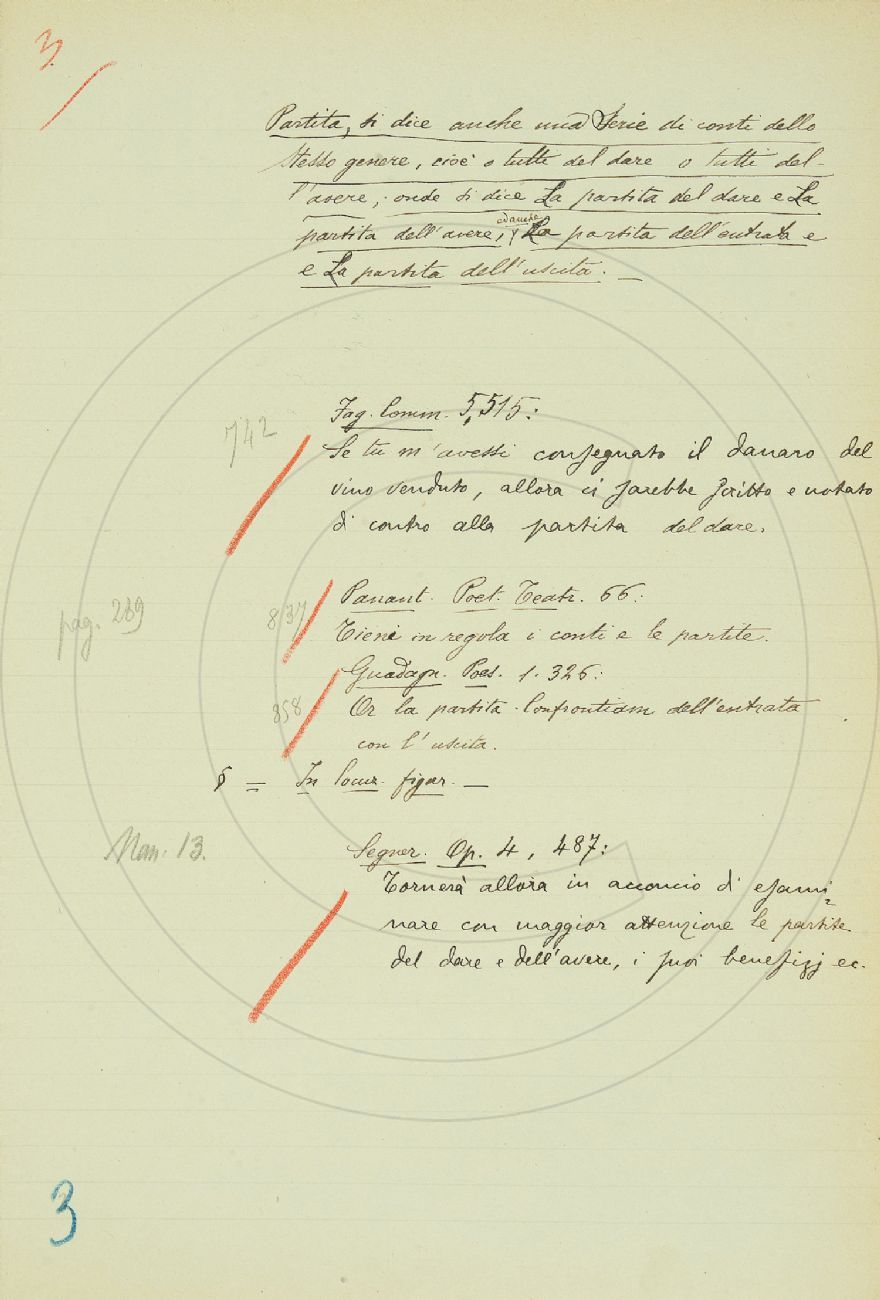 3.
Partita, si dice anche una Serie di conti dello
stesso genere, cioè o tutti del dare o tutti del-
l'avere; onde si dice La partita del dare e La
partita dell'avere, ed anche La partita dell'entrata e
e La partita dell'uscita. —
Fag. Comm. 5,515:
742
Se tu m'avessi consegnato il danaro del
vino venduto, allora ci sarebbe scritto e notato
di contro alla partita del dare.
Panant. Poet. Teatr. 66:
837
pag. 289
Tiene in regola i conti e le partite.
Guadagn. Poes. 1. 326:
858
Or la partita confrontiam dell'entrata
con l'uscita.
§ = In locuz. figur. —
Man. 13.
Segner. Op. 4, 487:
Tornerà allora in acconcio di esami=
nare con maggior attenzione le partite
del dare e dell'avere, i suoi benefizj ec.
3